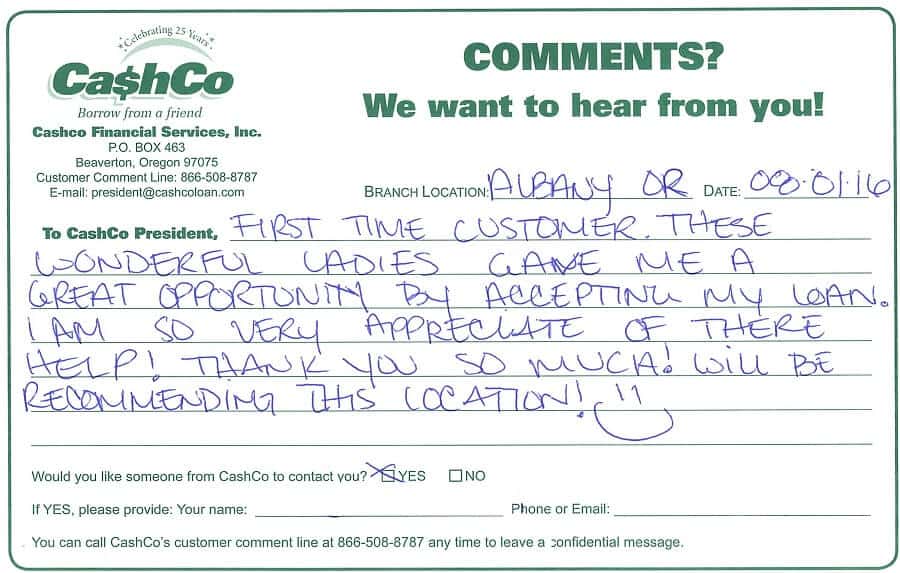 Celebrating 25 Years
Ca$hCo
Borrow from a friend
Cashco Financial Services, Inc.
P.O. BOX 463
Beaverton, Oregon 97075
Customer Comment Line: 866-508-8787
E-mail: president@cashcoloan.com
COMMENTS?
We want to hear from you!
BRANCH LOCATION: ALBANY OR DATE: 08.01.16
To CashCo President, FIRST TIME CUSTOMER. THESE
WONDERFUL LADIES GAVE ME A
GREAT OPPORTUNITY BY ACCEPTING MY LOAN.
I AM SO VERY APPRECIATE OF THERE
HELP! THANK YOU SO MUCH! WILL BE
RECOMMENDING THIS LOCATION!
Would you like someone from CashCo to contact you? YES NO
If YES, please provide: Your name: Phone or Email:
You can call CashCo's customer comment line at 866-508-8787 any time to leave a confidential message.